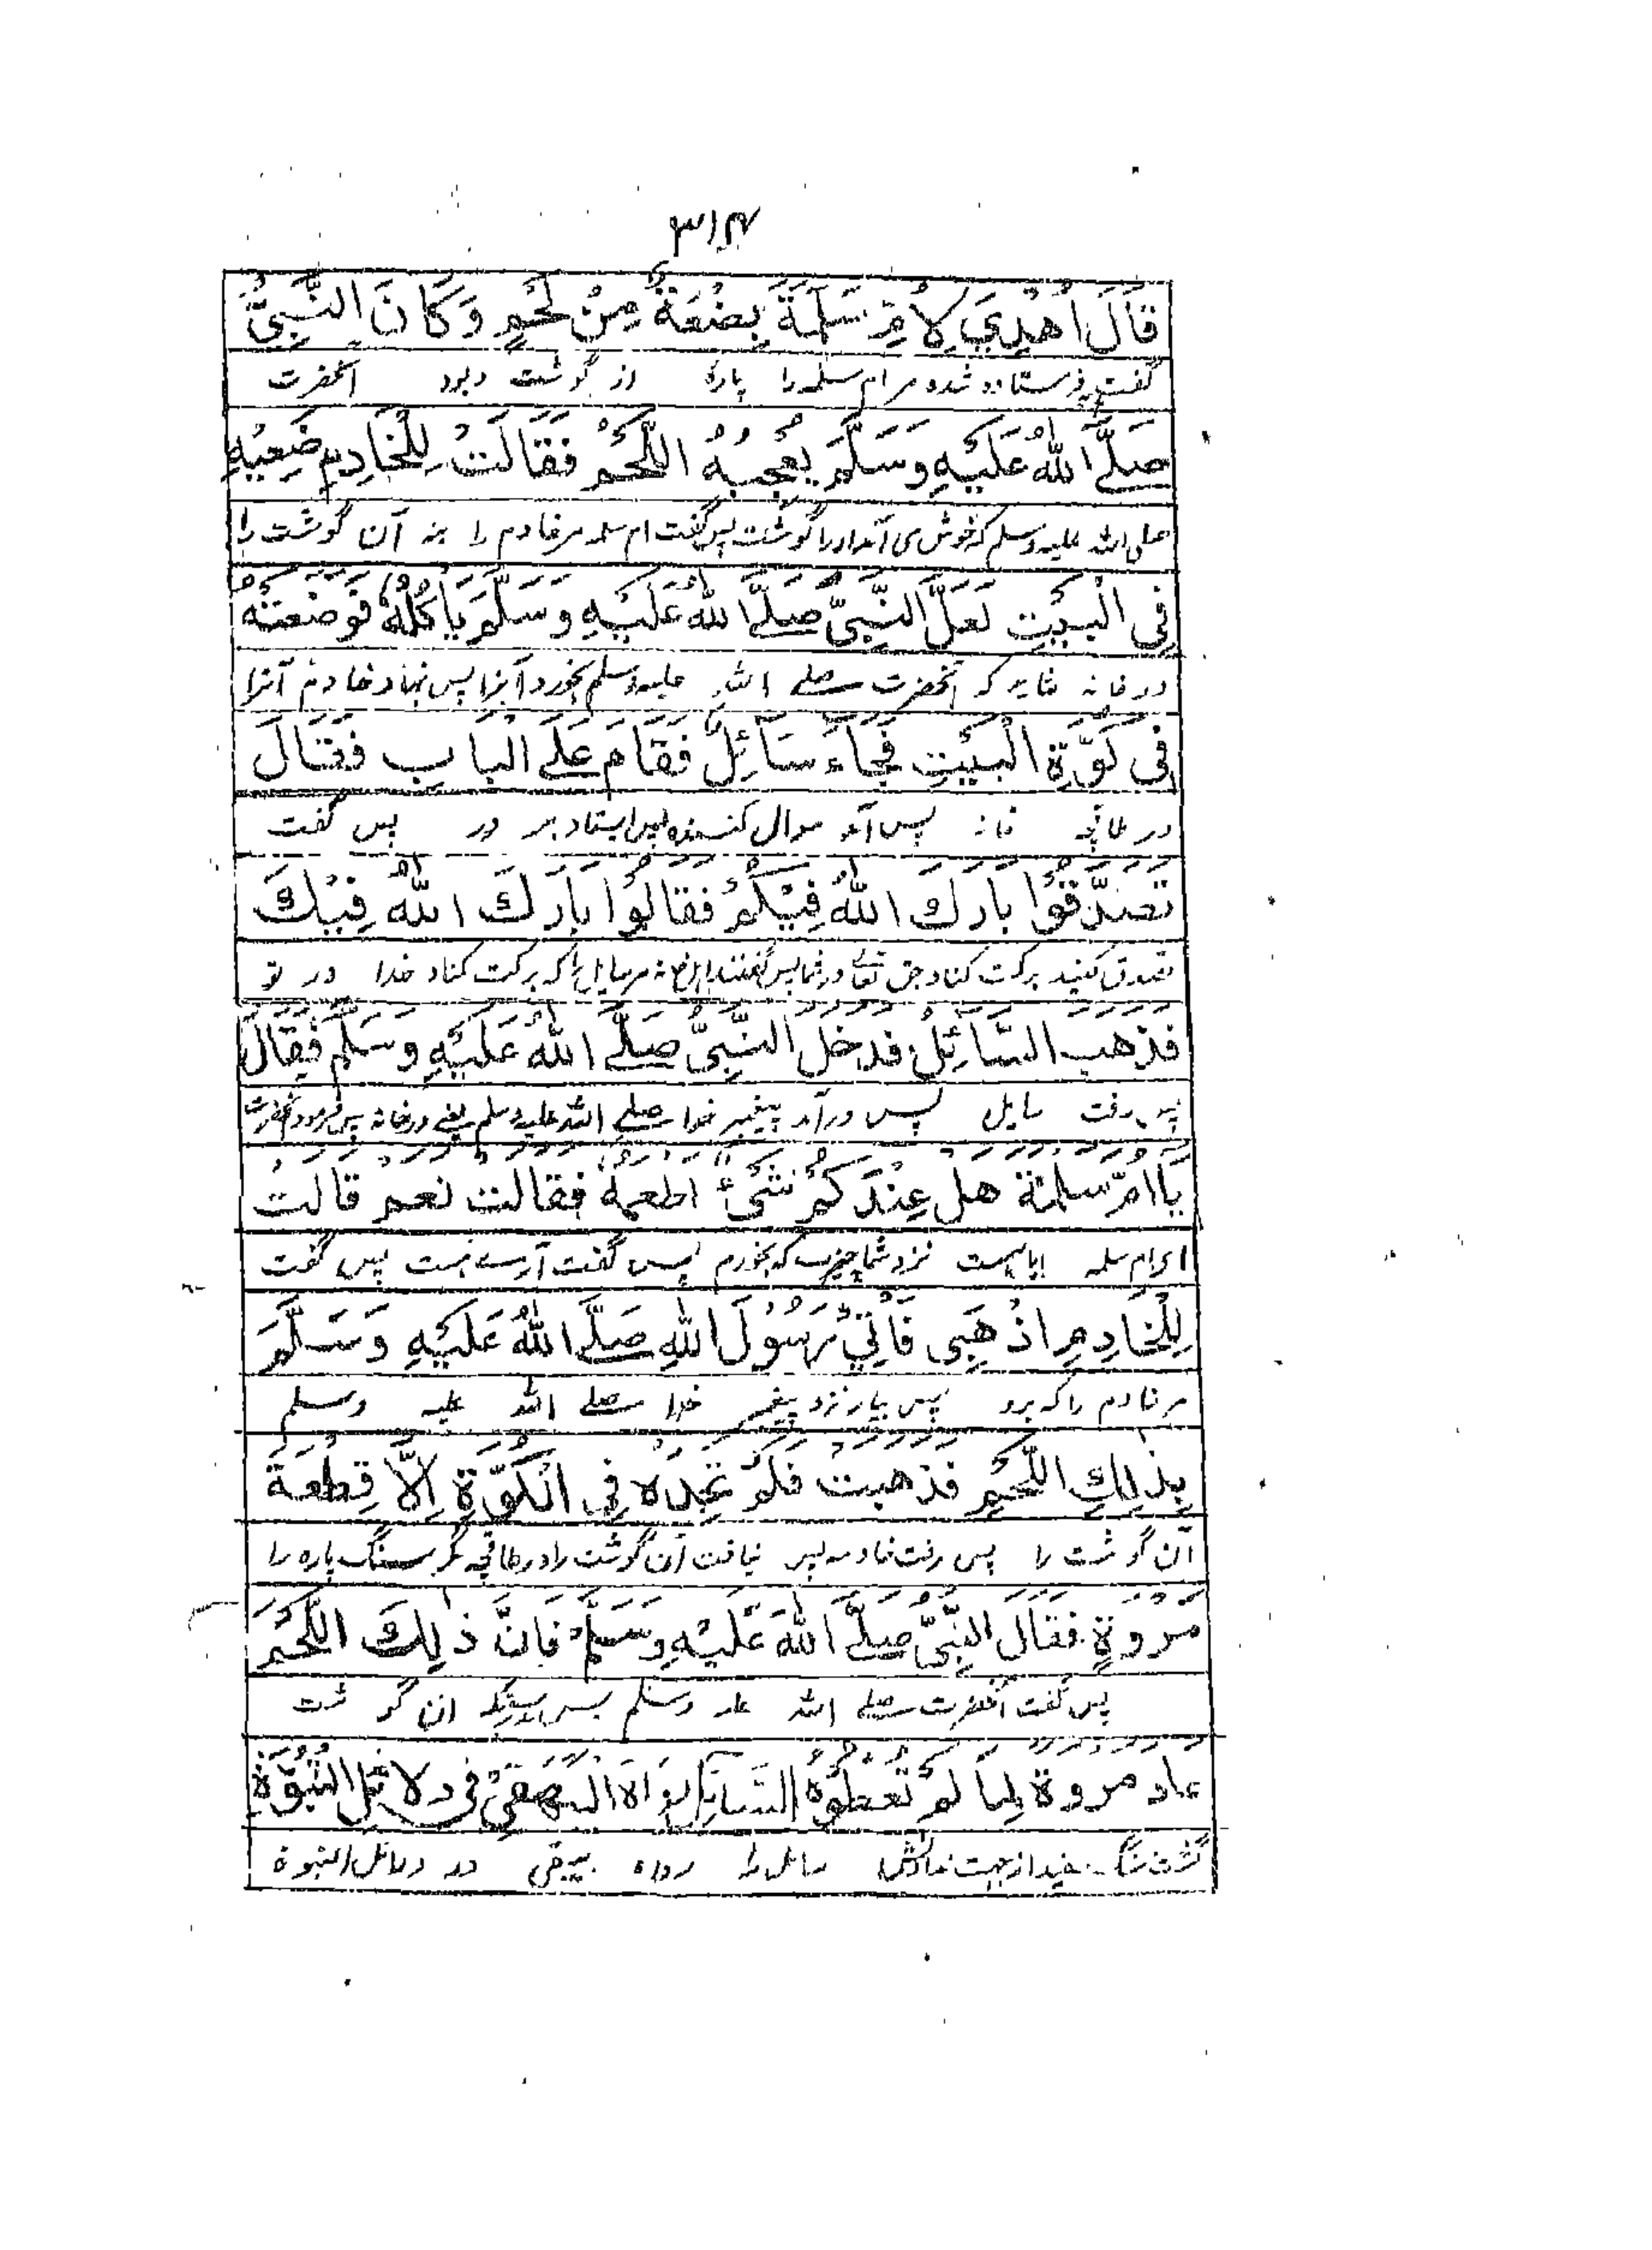 ۳۱۴
قَالَ اُهْدِيَ لِاُمِّ سَلَمَةَ بِضْعَةٌ مِنْ لَحْمٍ وَكَانَ النَّبِيُّ
گفت فرستاده شده مر ام سلمه را پاره از گوشت و بود آنحضرت
صَلَّى اللهُ عَلَيْهِ وَسَلَّمَ يُعْجِبُهُ اللَّحْمُ فَقَالَتْ لِلْخَادِمِ ضَعِيْهِ
صلی الله علیه وسلم که خوش می آمد او را گوشت پس گفت ام سلمه مر خادم را بنه آن گوشت را
فِى الْبَيْتِ لَعَلَّ النَّبِىَّ صَلَّى اللهُ عَلَيْهِ وَسَلَّمَ يَأْكُلُهُ فَوَضَعَتْهُ
در خانه شاید که آنحضرت صلے الله علیه وسلم بخورد آنرا پس نهاد خادم آنرا
فِى كَوَّةِ الْبَيْتِ فَجَاءَ سَآئِلٌ فَقَامَ عَلَى الْبَابِ فَقَالَ
در طاقچه خانه پس آمد سوال کننده پس ایستاد بر در پس گفت
تَصَدَّقُوْا بَارَكَ اللهُ فِيْكُمْ فَقَالُوْا بَارَكَ اللهُ فِيْكَ
تصدق کنید برکت کناد حق تعالے در شما پس گفتند اهل خانه مر سایل را که برکت کناد خدا در تو
فَذَهَبَ السَّائِلُ فدخل النَّبِىُّ صَلَّى اللهُ عَلَيْهِ وَسَلَّمَ فَقَالَ
پس رفت سایل پس درآمد پیغمبر خدا صلے الله علیه وسلم یعنے در خانه پس فرمود آنحضرت
يَا اُمَّ سلمة هل عِنْدَكُمْ شَىْءٌ اطعمهُ فقالت نعم قالتْ
ای ام سلمه ایا هست نزد شما چیزے که بخورم پس گفت آرے هست پس گفت
لِلْخَادِمِ اذْهَبِى فَأْتِىْ رَسُوْلَ اللهِ صَلَّى اللهُ عَلَيْهِ وَسَلَّمَ
مر خادم را که برو پس بیار نزد پیغمبر خدا صلے الله علیه وسلم
بِذٰلِكِ اللَّحْمِ فذهبتْ فَلَمْ تَجِدْهُ فِى الْكَوَّةِ اِلَّا قِطْعَةَ
آن گوشت را پس رفت خادمه پس نیافت آن گوشت را در طاقچه مگر سنگ پاره را
مَرْوَةٍ فَقَالَ النَّبِىُّ صَلَّى اللهُ عَلَيْهِ وَسَلَّمَ فَاِنَّ ذٰلِكَ اللَّحْمَ
پس گفت آنحضرت صلے الله علیه وسلم پس بدرستیکه آن گوشت
عاد مروة لِمَا لَمْ تُعْطُوْهُ السَّائِلَ رَوَاهُ الْبَيْهَقِىُّ فى دلائل النُّبُوَّةِ
گشت سنگ سفید از جهت ندادنش سائل را رواه بیهقی در دلائل النبوة